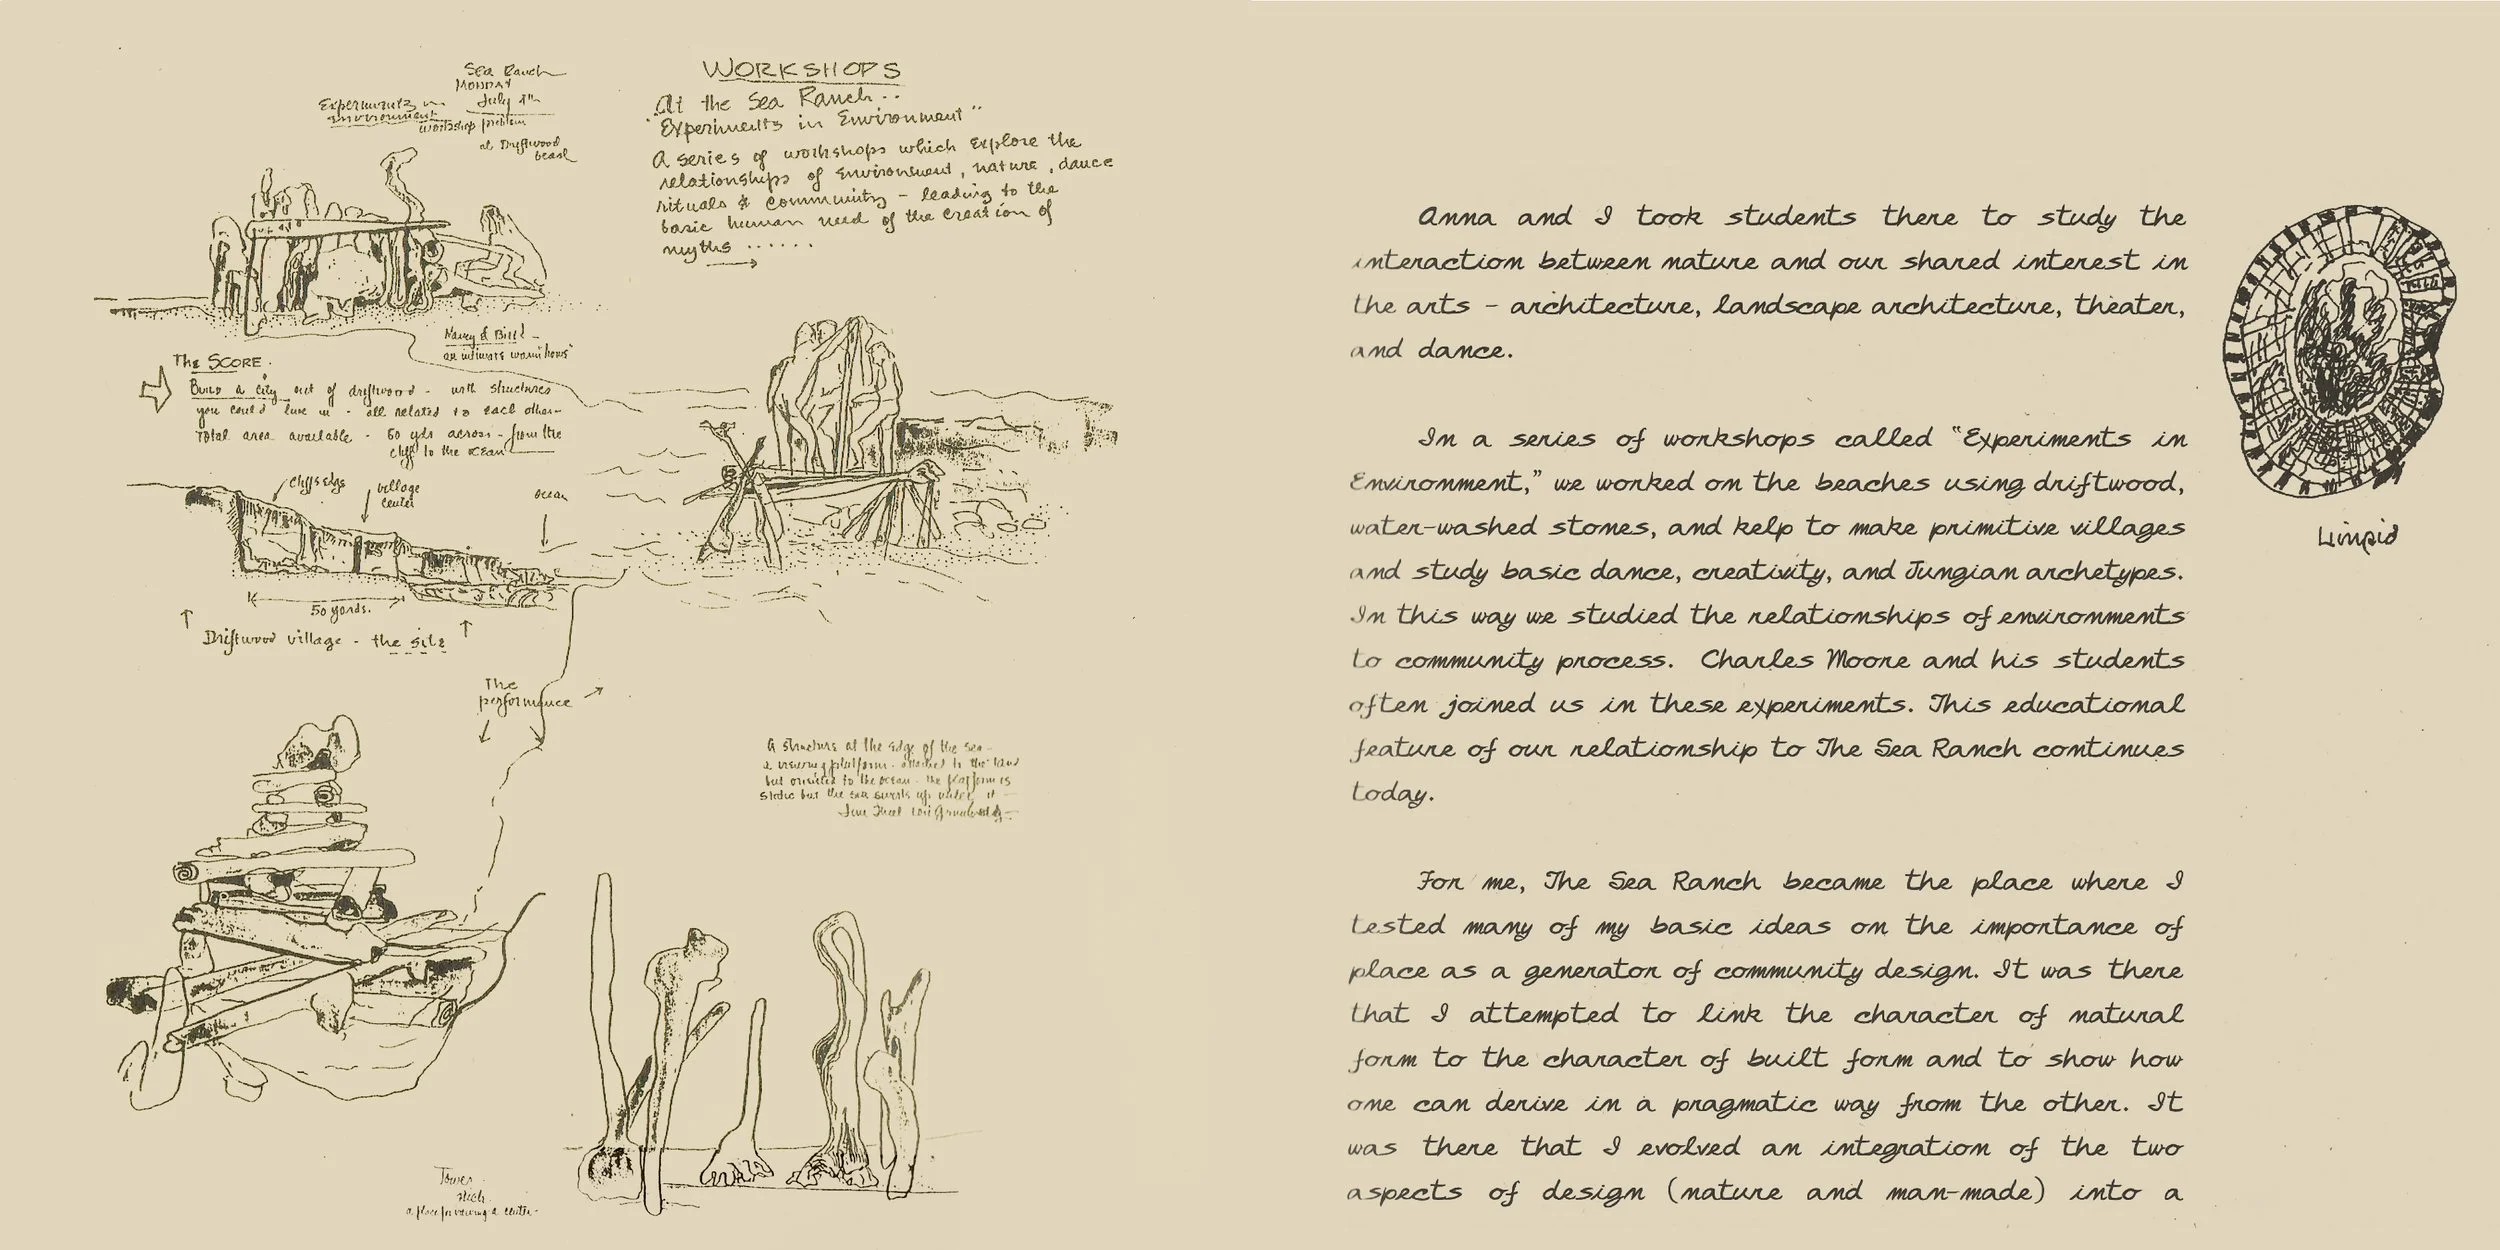 Sea Ranch
MONDAY
July 4th
Experiments in
environment
workshop problem
at Driftwood
beach
WORKSHOPS
At the Sea Ranch..
"Experiments in Environment"
A series of workshops which explore the
relationships of environment, nature, dance
rituals & community – leading to the
basic human need of the creation of
myths ......
Nancy & Bill
The SCORE.
Build a city out of driftwood - with structures
you could live in - all related to each other-
Total area available - 50 yds across - from the
cliff to the ocean
cliffs edge
village
center
ocean
50 yards.
Driftwood village - the site
The
performance
A structure at the edge of the sea-
a viewing platform - attached to the land
but oriented to the ocean - the platform is
static but the sea surges up under it
Tower
a place for viewing
Anna and I took students there to study the
interaction between nature and our shared interest in
the arts – architecture, landscape architecture, theater,
and dance.
In a series of workshops called "Experiments in
Environment," we worked on the beaches using driftwood,
water-washed stones, and kelp to make primitive villages
and study basic dance, creativity, and Jungian archetypes.
In this way we studied the relationships of environments
to community process. Charles Moore and his students
often joined us in these experiments. This educational
feature of our relationship to The Sea Ranch continues
today.
For me, The Sea Ranch became the place where I
tested many of my basic ideas on the importance of
place as a generator of community design. It was there
that I attempted to link the character of natural
form to the character of built form and to show how
one can derive in a pragmatic way from the other. It
was there that I evolved an integration of the two
aspects of design (nature and man-made) into a
Limpid